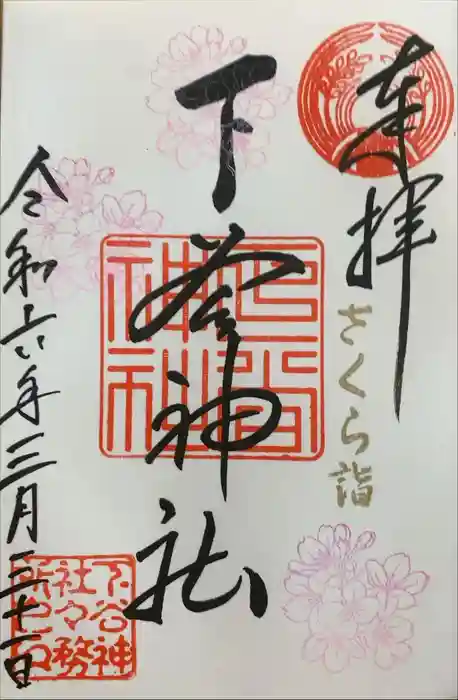 奉拝
さくら詣
下谷神社
下谷神社
令和六年三月三十一日
下谷神社々務所之印